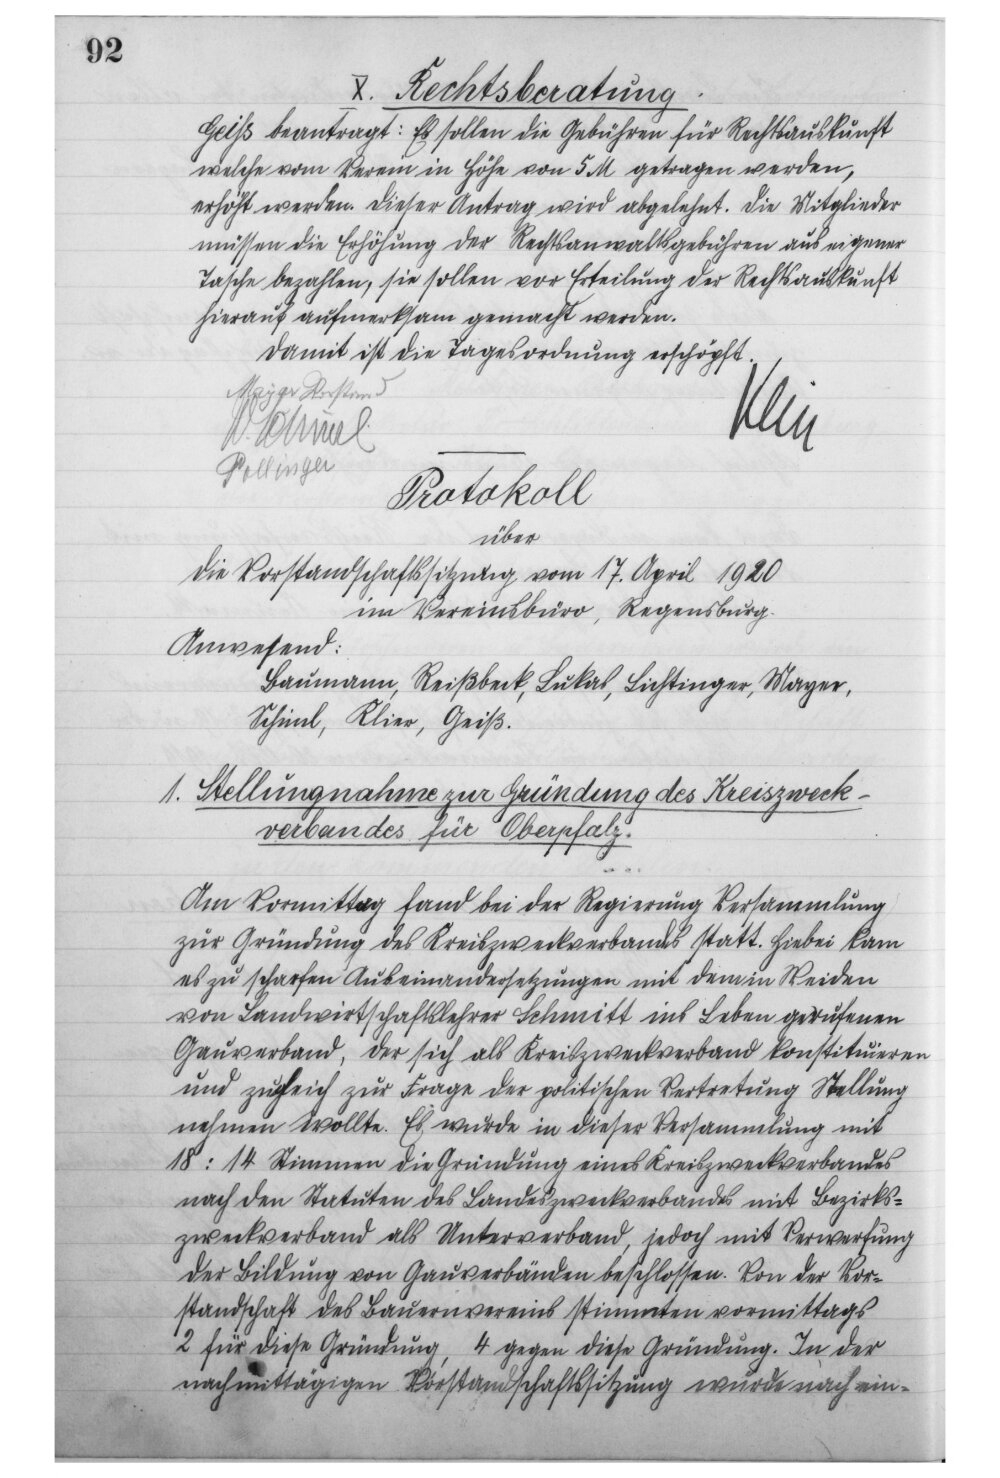 92
X. Rechtsberatung
Geiß beantragt: Es sollen die Gebühren für Rechtsauskunft
welche vom Verein in Höhe von 5 M getragen werden,
erhöht werden. Dieser Antrag wird abgelehnt. Die Mitglieder
müssen die Erhöhung der Rechtsanwaltsgebühren aus eigener
Tasche bezahlen, sie sollen vor Erteilung der Rechtsauskunft
hierauf aufmerksam gemacht werden.
Damit ist die Tagesordnung erschöpft.
Mayer Vorstand
Schiml
Pollinger
Protokoll
über
die Vorstandschaftssitzung vom 17. April 1920
im Vereinsbüro, Regensburg.
Anwesend:
Baumann, Reißbeck, Lukas, Lichtinger, Mayer,
Schiml, Klier, Geiß.
1. Stellungnahme zur Gründung des Kreiszweck-
verbandes für Oberpfalz.
Am Vormittag fand bei der Regierung Versammlung
zur Gründung des Kreiszweckverbandes statt. Hiebei kam
es zu scharfen Auseinandersetzungen mit dem in Weiden
von Landwirtschaftslehrer Schmitt ins Leben gerufenen
Gauverband, der sich als Kreiszweckverband konstituieren
und zugleich zur Frage der politischen Vertretung Stellung
nehmen wollte. Es wurde in dieser Versammlung mit
18 : 14 Stimmen die Gründung eines Kreiszweckverbandes
nach den Statuten des Landeszweckverbandes mit Bezirks=
zweckverband als Unterverband, jedoch mit Verwerfung
der Bildung von Gauverbänden beschlossen. Von der Vor=
standschaft des Bauernvereins stimmten vormittags
2 für diese Gründung, 4 gegen diese Gründung. In der
nachmittägigen Vorstandschaftssitzung wurde nach ein=